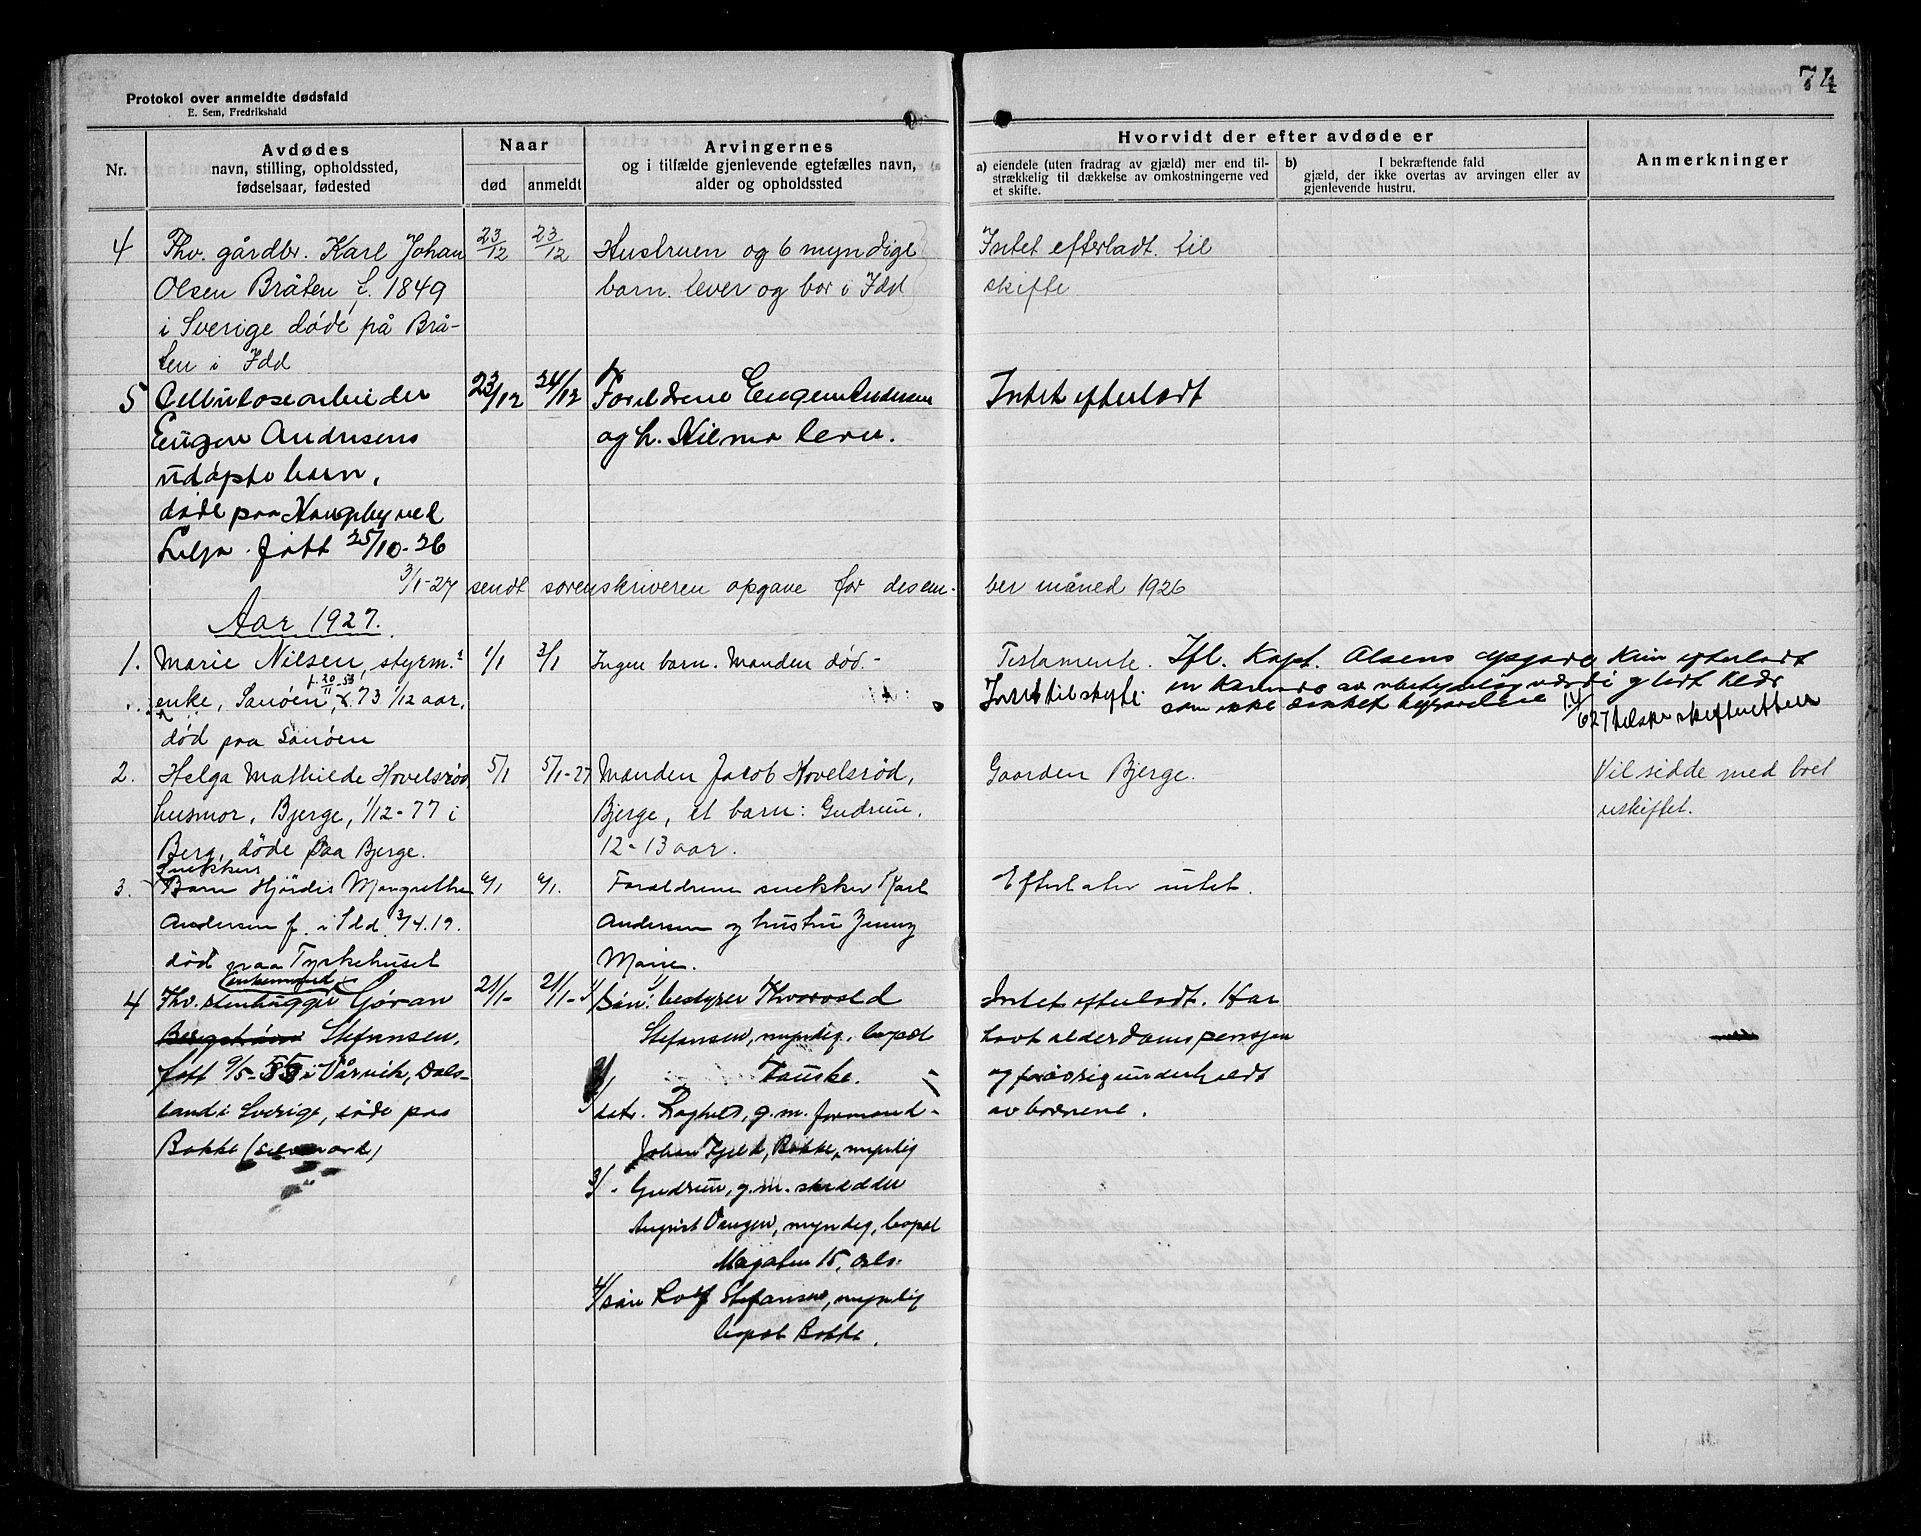 74
Protokol over anmeldte dødsfald
E. Sem, Fredrikshald
Nr.
Avdødes
navn, stilling, opholdssted,
fødselsaar, fødested
Naar
død
anmeldt
Arvingernes
og i tilfælde gjenlevende egtefælles navn,
alder og opholdssted
Hvorvidt der efter avdøde er
a) eiendele (uten fradrag av gjæld) mer end til-
strækkelig til dækkelse av omkostningerne ved
et skifte.
b) I bekræftende fald
gjæld, der ikke overtas av arvingen eller av
gjenlevende hustru.
Anmerkninger
4
Fhv. gårdbr. Karl Johan
Olsen Bråten f. 1849
i Sverige døde på Brå-
ten i Idd
23/12
23/12
Hustruen og 6 myndige
barn lever og bor i Idd
Intet efterladt til
skifte
5
Cellulosearbeider
Eugen Andersens
udøpte barn,
døde paa
født 25/10-26
23/12
24/12
Forældrene Eugen Andersen
og h. Hilma lever.
Intet efterladt
3/1-27 sendt sorenskriveren opgave for desem-
ber måned 1926
Aar 1927.
1.
Marie Nilsen, styrm.
enke, Sanøen, 73 1/12 aar,
f. 20/11-53
død paa Sanøen
1/1
3/1
Ingen barn. Manden død.
Testamente.
Intet til skifte
Ifl. Kapt. Olsens opgave kun efterladt
en av værdi og lidt klær
som ikke
2.
Helga Mathilde Hovelsrød,
husmor, Bjerge, 1/12-77 i
Berg, døde paa Bjerge.
5/1
5/1-27
Manden Jacob Hovelsrød,
Bjerge, et barn: Gudrun,
12-13 aar.
Gaarden Bjerge.
Vil sidde med boet
uskiftet.
3.
Snekkers
Barn Hjördis Margrethe
Andersen f. i Idd 3/4.19.
død paa Tyskehuset
6/1
6/1.
Forældrene snekker Karl
Andersen og hustru Jenny
Marie.
Efterlater intet.
4
enkemand
Fhv. stenhugger Göran
Bergström Stefansen,
født 9/5-55 i Vårvik, Dals-
land i Sverige, døde paa
Bakke
21/1-
21/1-
1/ Søn: bestyrer Thorvald
Stefansen, myndig, bopæl
Fauske.
2/ datr. Raghild, g.m. formand
Johan Kjeld, Bakke, myndig
3/ - Gudrun, g.m. skrædder
August Vangen, myndig, bopæl
15, Oslo.
4/ søn Rolf Stefansen, myndig
bopæl Bakke.
Intet efterladt. Har
havt alderdomspensjon
og forøvrig underholdt
av barnene.